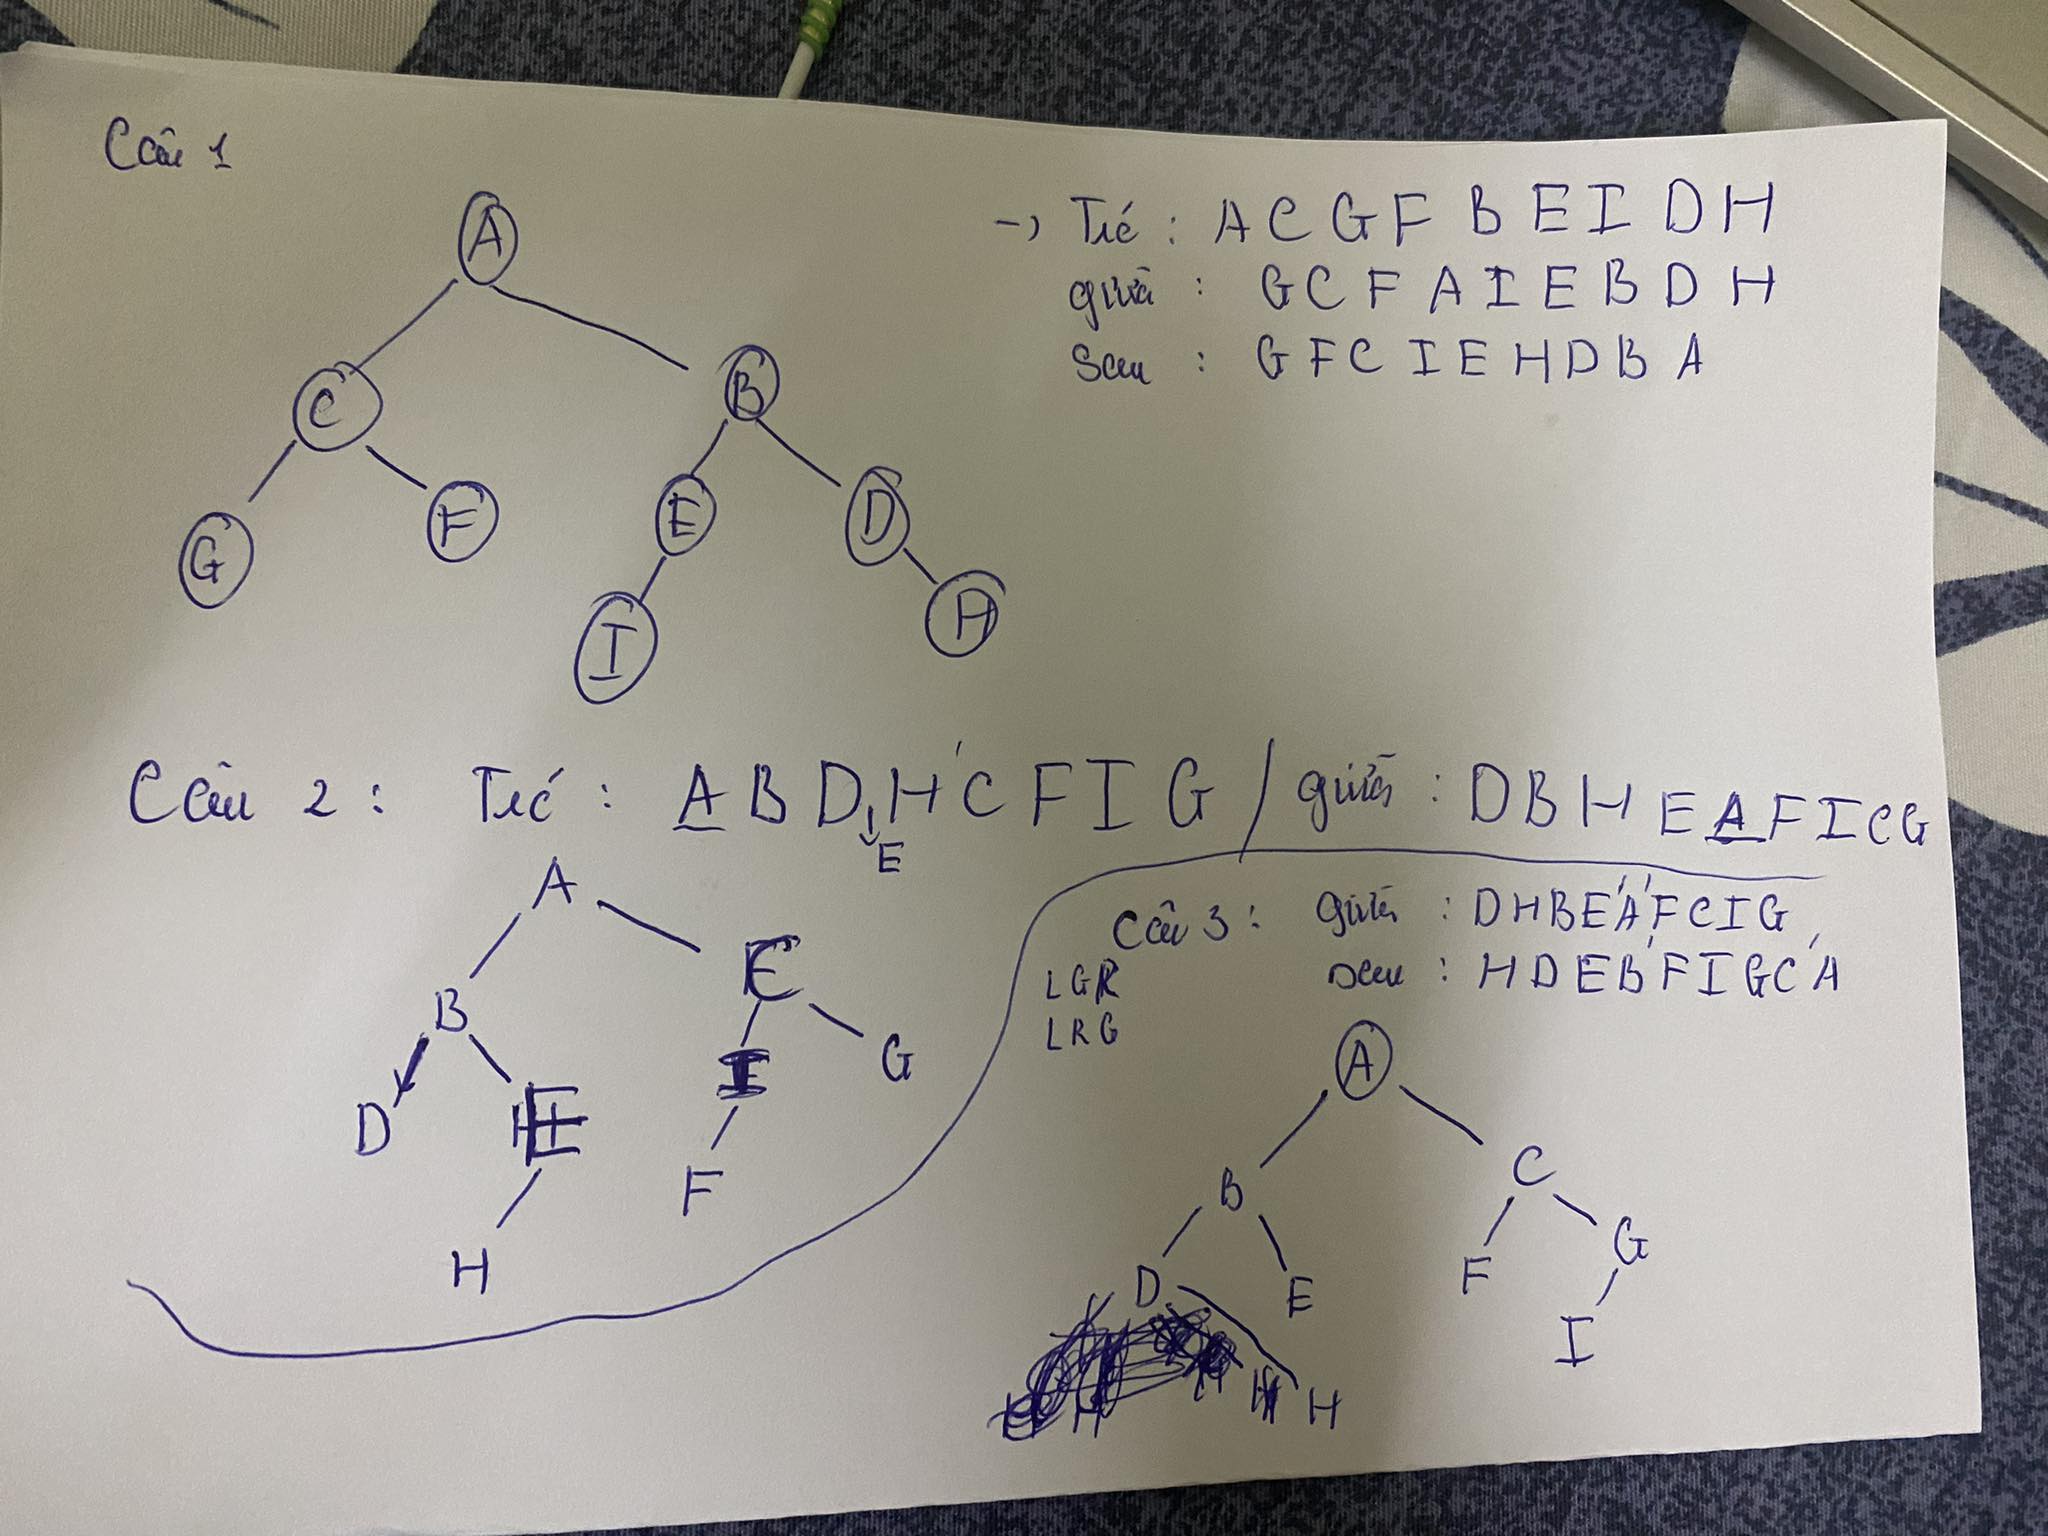 Câu 1
A
C B
G F E D
I H
-> Trc : A C G F B E I D H
giữa : G C F A I E B D H
Sau : G F C I E H D B A
Câu 2 : Trc : A B D H C F I G / giữa : D B H E A F I C G
E
A
B C
D E I G
H F
Câu 3 : giữa : D H B E A F C I G
sau : H D E B F I G C A
LGR
LRG
A
B C
D E F G
H I